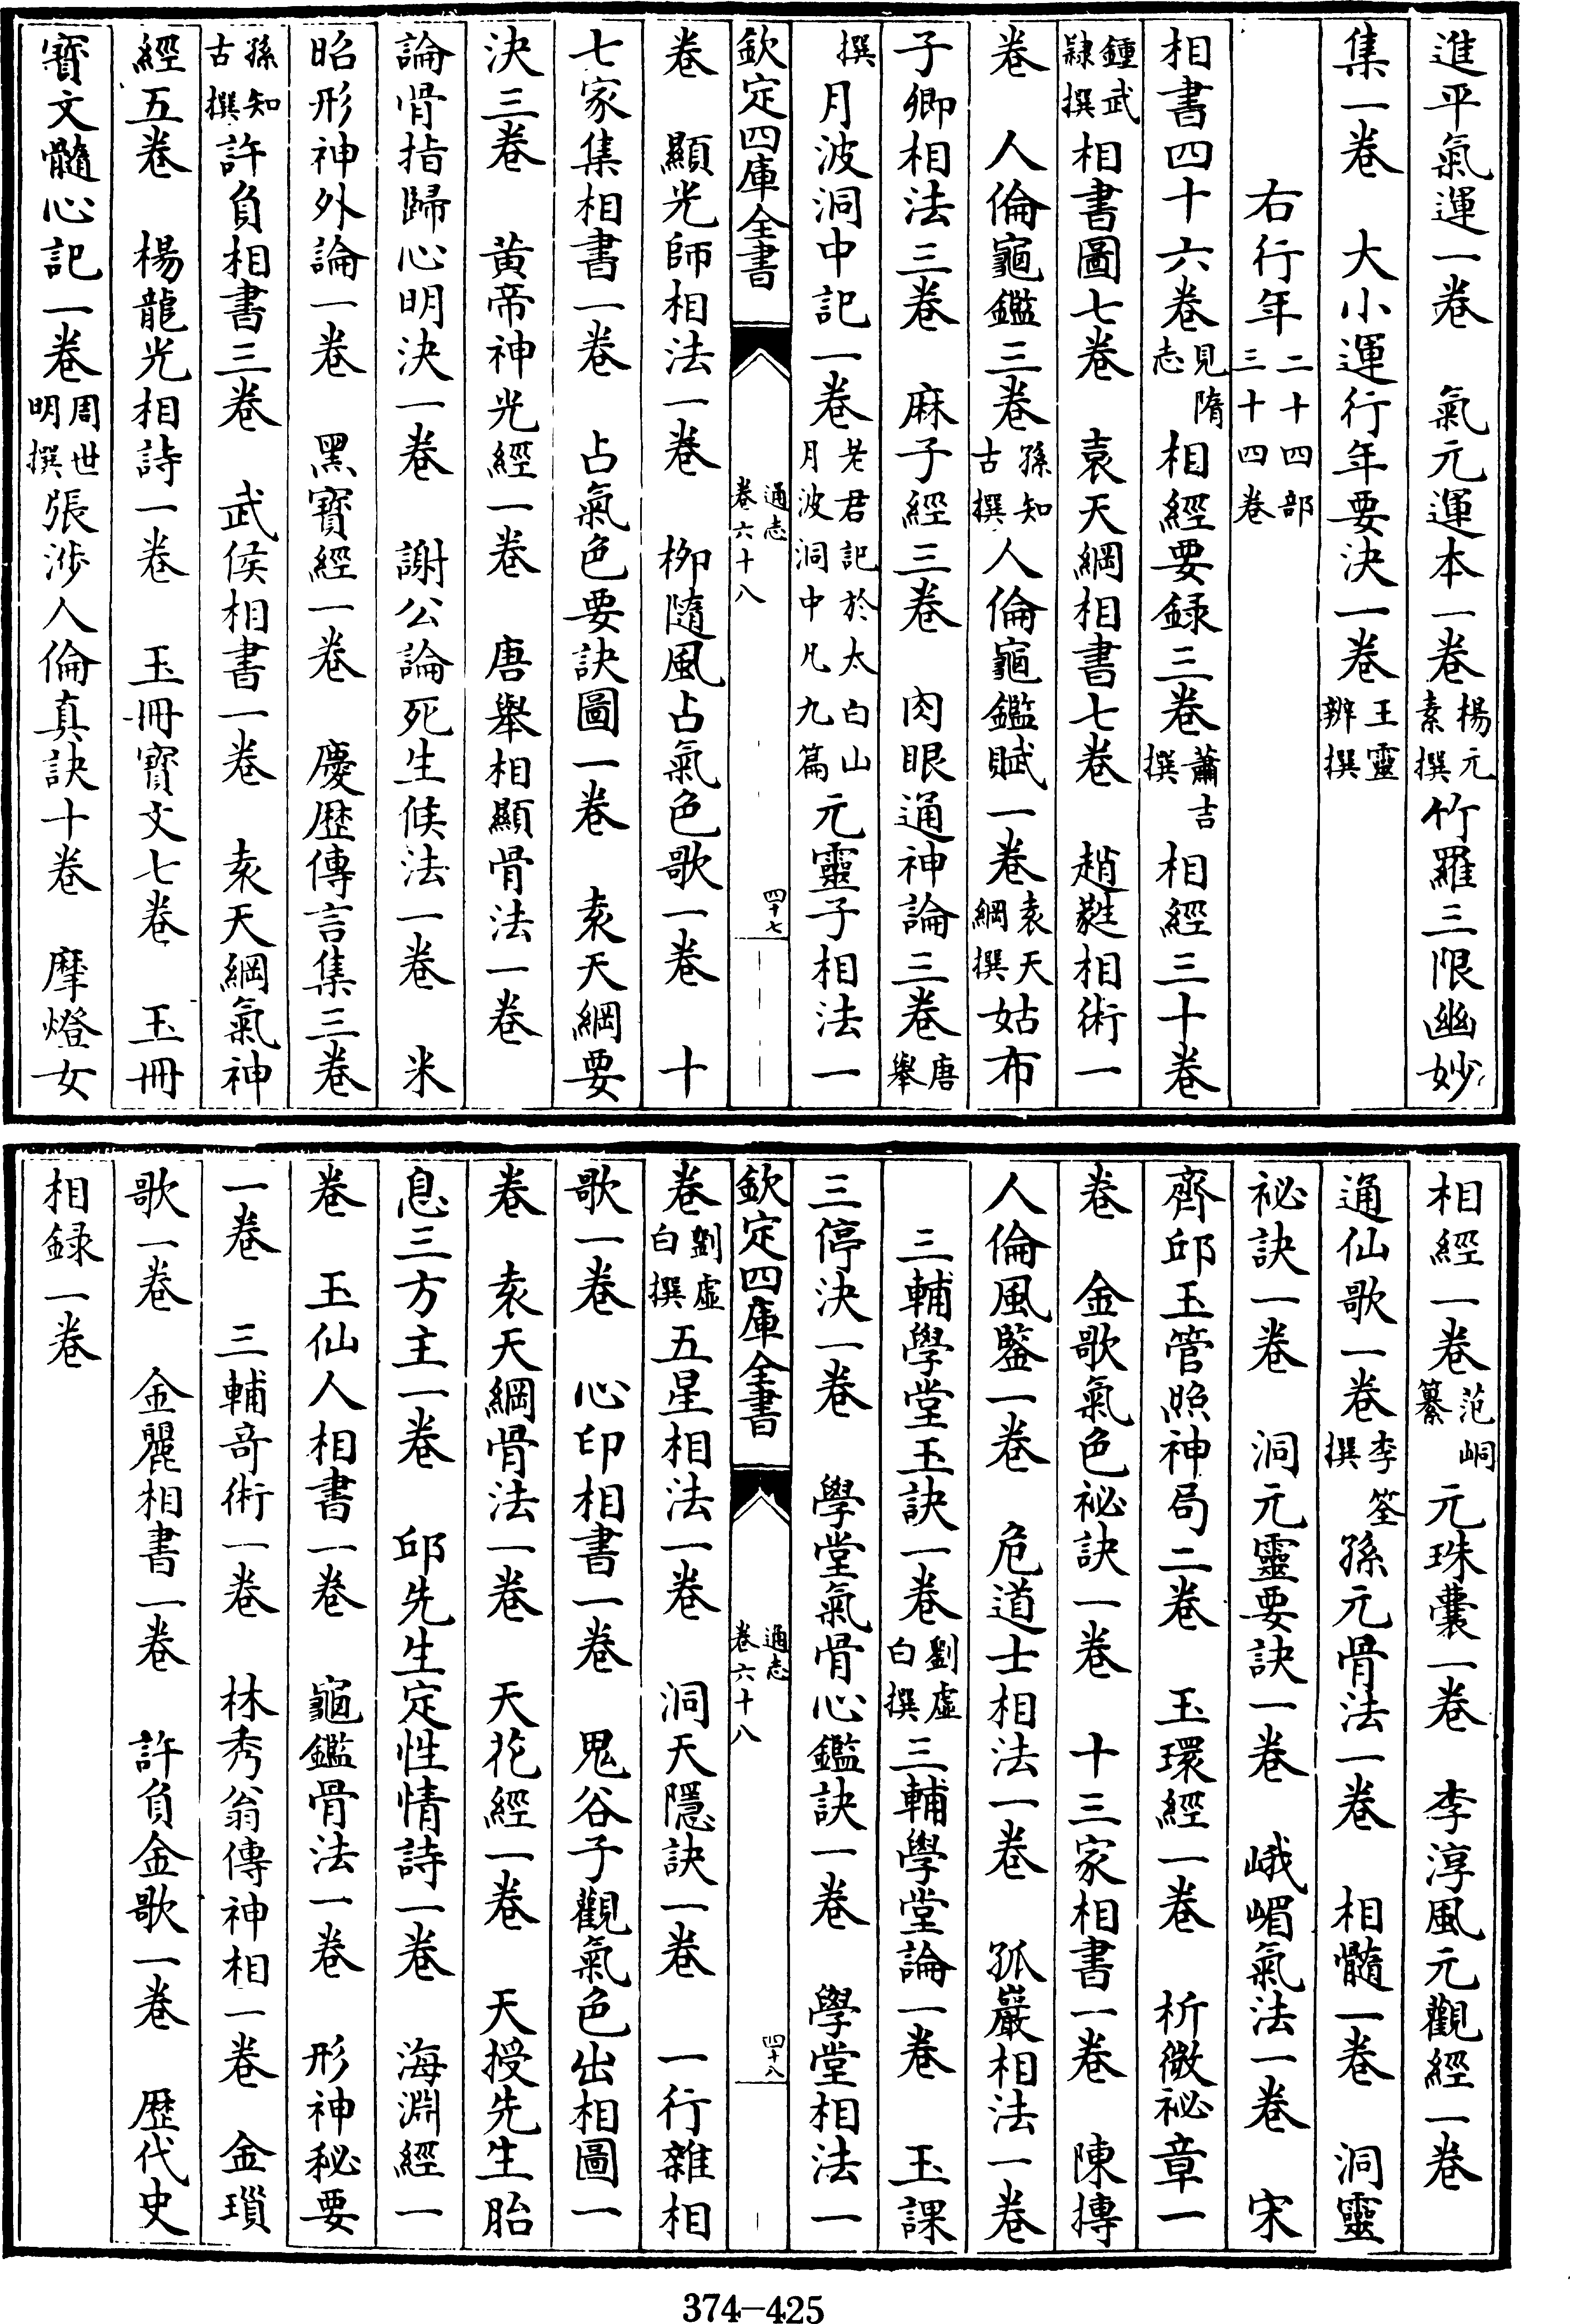 進平氣運一卷　氣元運本一卷楊元素撰竹羅三限幽妙
集一卷　大小運行年要決一卷王靈辨撰
右行年二十四部三十四卷
相書四十六卷見隋志相經要録三卷蕭吉撰相經三十卷
鍾武隸撰相書圖七卷　袁天綱相書七卷　趙蕤相術一
卷　人倫龜鑑三卷孫知古撰人倫龜鑑賦一卷袁天綱撰姑布
子卿相法三卷　麻子經三卷　肉眼通神論三卷唐舉
撰月波洞中記一卷老君記於太白山月波洞中凡九篇元靈子相法一
欽定四庫全書　通志卷六十八　四十七
卷　顯光師相法一卷　栁隨風占氣色歌一卷　十
七家集相書一卷　占氣色要訣圖一卷　袁天綱要
決三卷　黃帝神光經一卷　唐舉相顯骨法一卷
論骨指歸心明決一卷　謝公論死生候法一卷　米
昭形神外論一卷　黑寳經一卷　慶歴傳言集三卷
孫知古撰許負相書三卷　武侯相書一卷　袁天綱氣神
經五卷　楊龍光相詩一卷　玉冊寳文七卷　玉冊
寳文髓心記一卷周世明撰張渉人倫真訣十卷　摩燈女
相經一卷范峒纂元珠囊一卷　李淳風元觀經一卷
通仙歌一卷李筌撰孫元骨法一卷　相髓一卷　洞靈
祕訣一卷　洞元靈要訣一卷　峨嵋氣法一卷　宋
齊邱玉管照神局二卷　玉環經一卷　析微祕章一
卷　金歌氣色祕訣一卷　十三家相書一卷　陳摶
人倫風鑒一卷　危道士相法一卷　孤巖相法一卷
三輔學堂玉訣一卷劉虛白撰三輔學堂論一卷　玉課
三停決一卷　學堂氣骨心鑑訣一卷　學堂相法一
欽定四庫全書　通志卷六十八　四十八
卷劉虛白撰五星相法一卷　洞天隱訣一卷　一行雜相
歌一卷　心印相書一卷　鬼谷子觀氣色出相圖一
卷　袁天綱骨法一卷　天花經一卷　天授先生胎
息三方主一卷　邱先生定性情詩一卷　海淵經一
卷　玉仙人相書一卷　龜鑑骨法一卷　形神秘要
一卷　三輔竒術一卷　林秀翁傳神相一卷　金瑣
歌一卷　金麗相書一卷　許負金歌一卷　歴代史
相録一卷
374-425